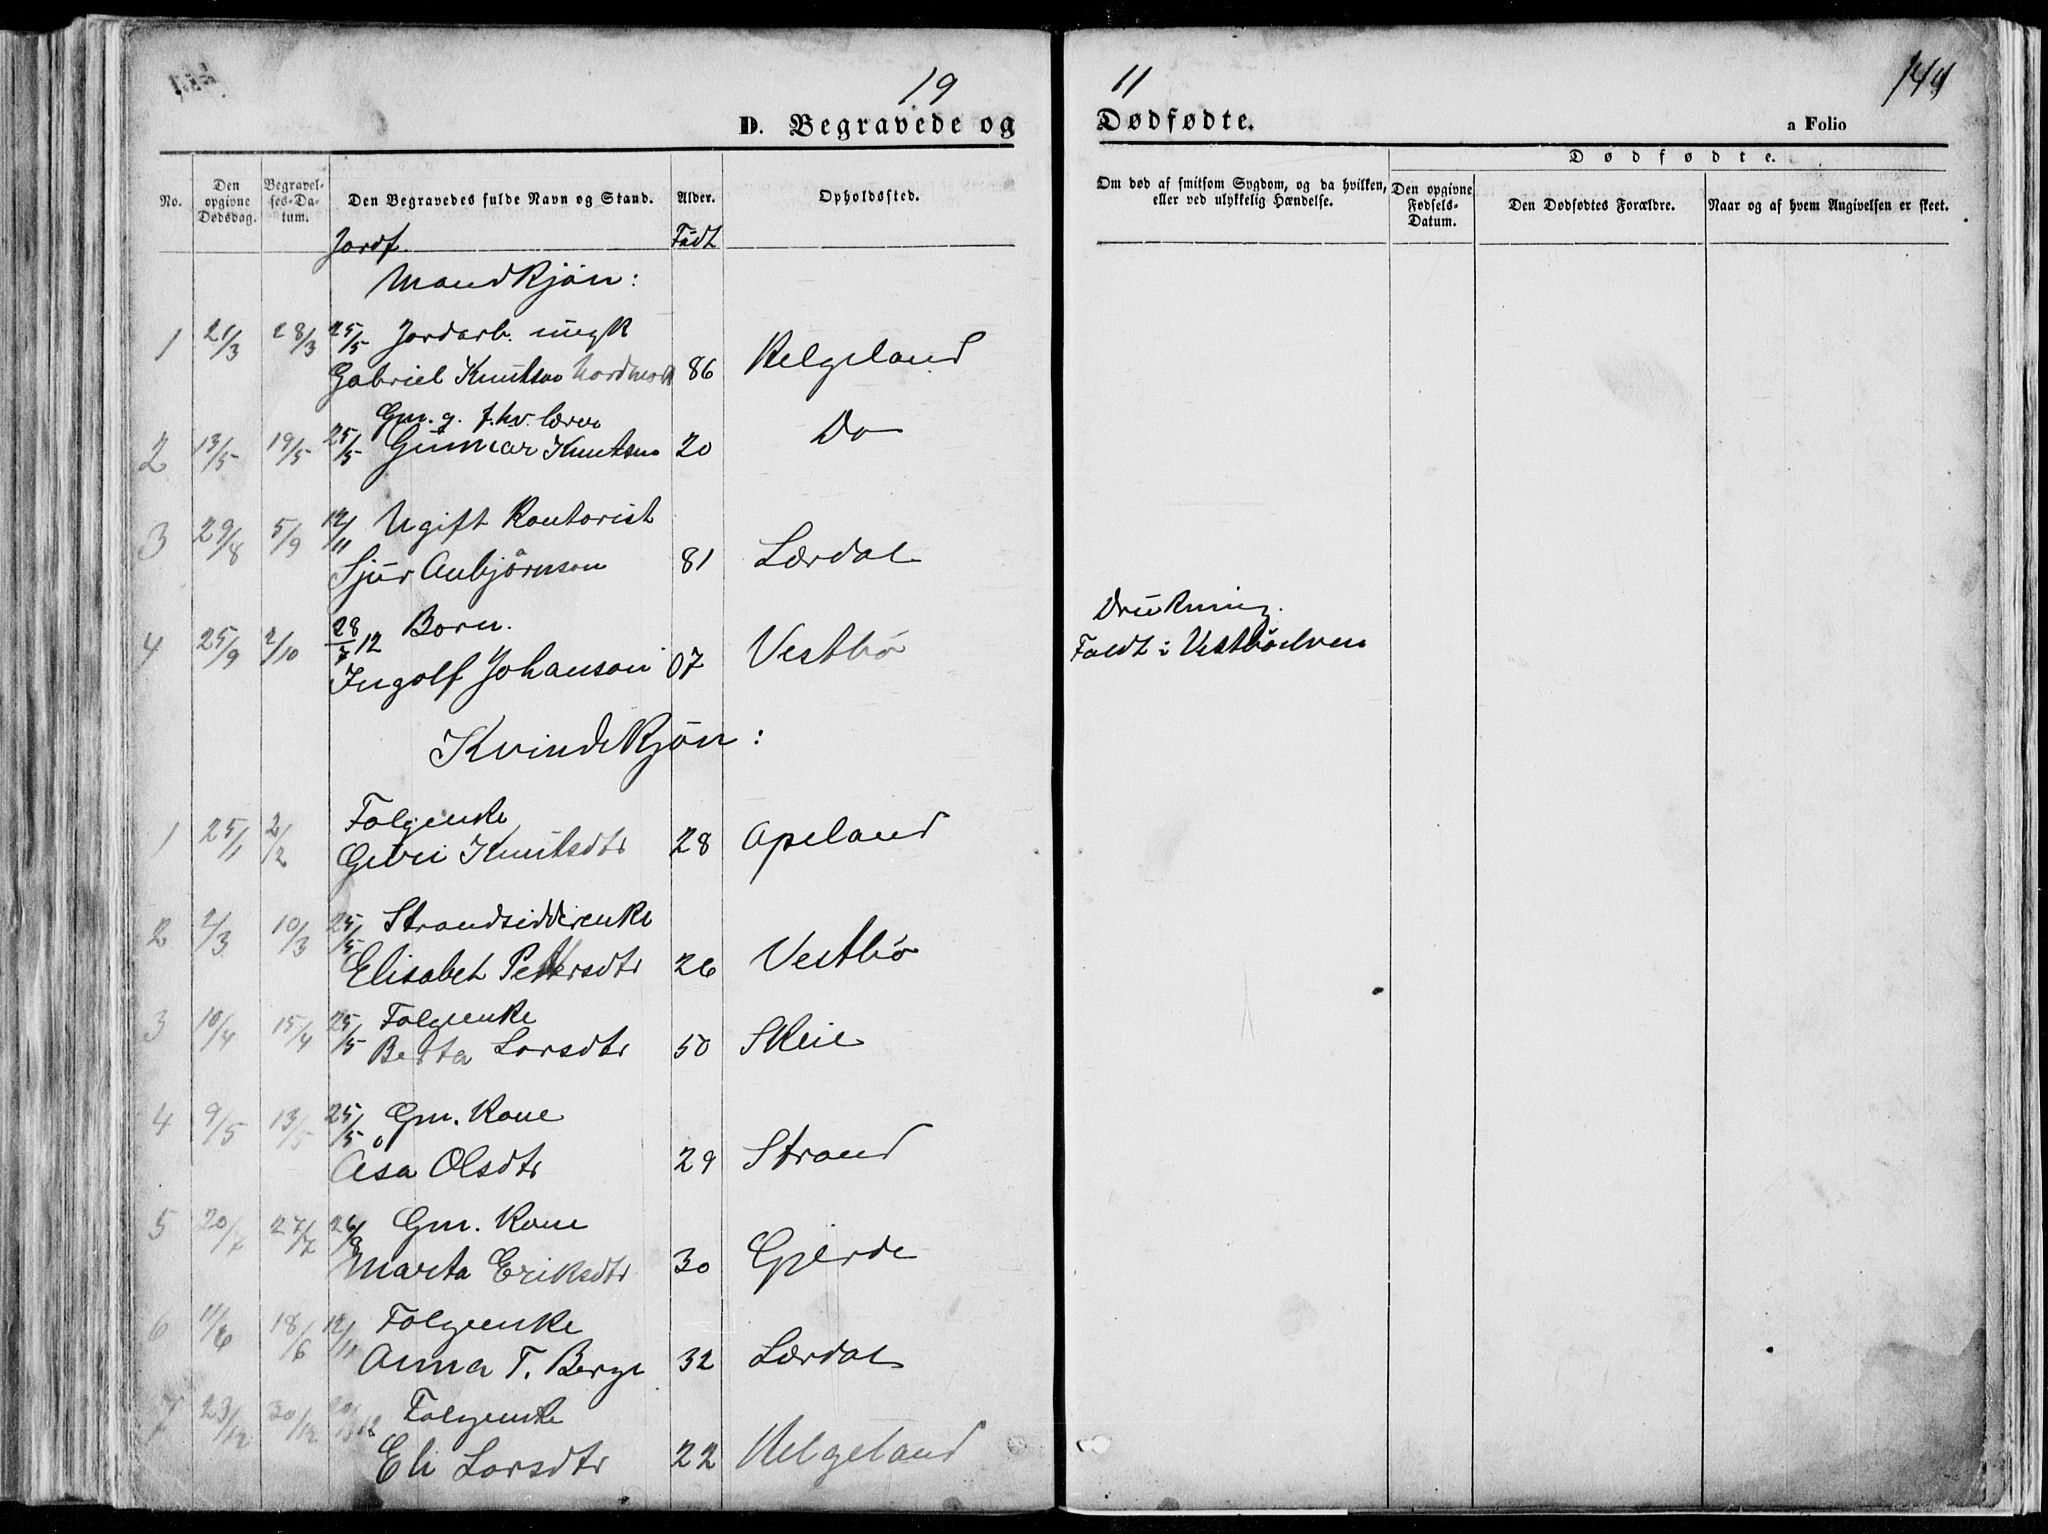 19 11 144
D. Begravede og Dødfødte.
a Folio
Dødfødte.
No. Den opgivne Dødsdag. Begravelses-Datum. Den Begravedes fulde Navn og Stand. Alder. Opholdssted. Om død af smitsom Sygdom, og da hvilken, eller ved ulykkelig Hændelse. Den opgivne Fødsels-Datum. Den Dødfødtes Forældre. Naar og af hvem Angivelsen er skeet.
Jordf. Födt
Mandkjön:
1 21/3 28/3 25/5 Jordarb. ungk
Gabriel Knutson Nordmork 86 Helgeland
Gm. g. f.hv. lærer
2 13/5 19/5 25/5 Gunnar Knutson 20 Do
3 29/8 5/9 12/11 Ugift Kontorist
Sjur Anbjörnson 81 Lærdal
4 25/9 2/10 28/7 12 Born. Drukning.
Ingolf Johanson 07 Vestbö Faldt i Vestböelven
Kvindekjön:
1 25/1 2/2 Folgenke
Guri Knutsdtr 28 Apeland
2 2/3 10/3 25/5 Strandsidderenke
Elisabet Pettersdtr 26 Vestbö
3 10/4 15/4 25/5 Folgeenke
Berta Larsdtr 50 Skeie
4 9/5 13/5 25/5 Gm. Kone
Åsa Olsdtr 29 Strand
5 20/7 27/7 26/8 Gm. Kone
Marta Eriksdtr 30 Gjerde
6 11/6 18/6 12/11 Folgeenke
Anna T. Berge 32 Lærdal
7 23/12 30/12 12 Folgenke
Eli Larsdtr 22 Helgeland